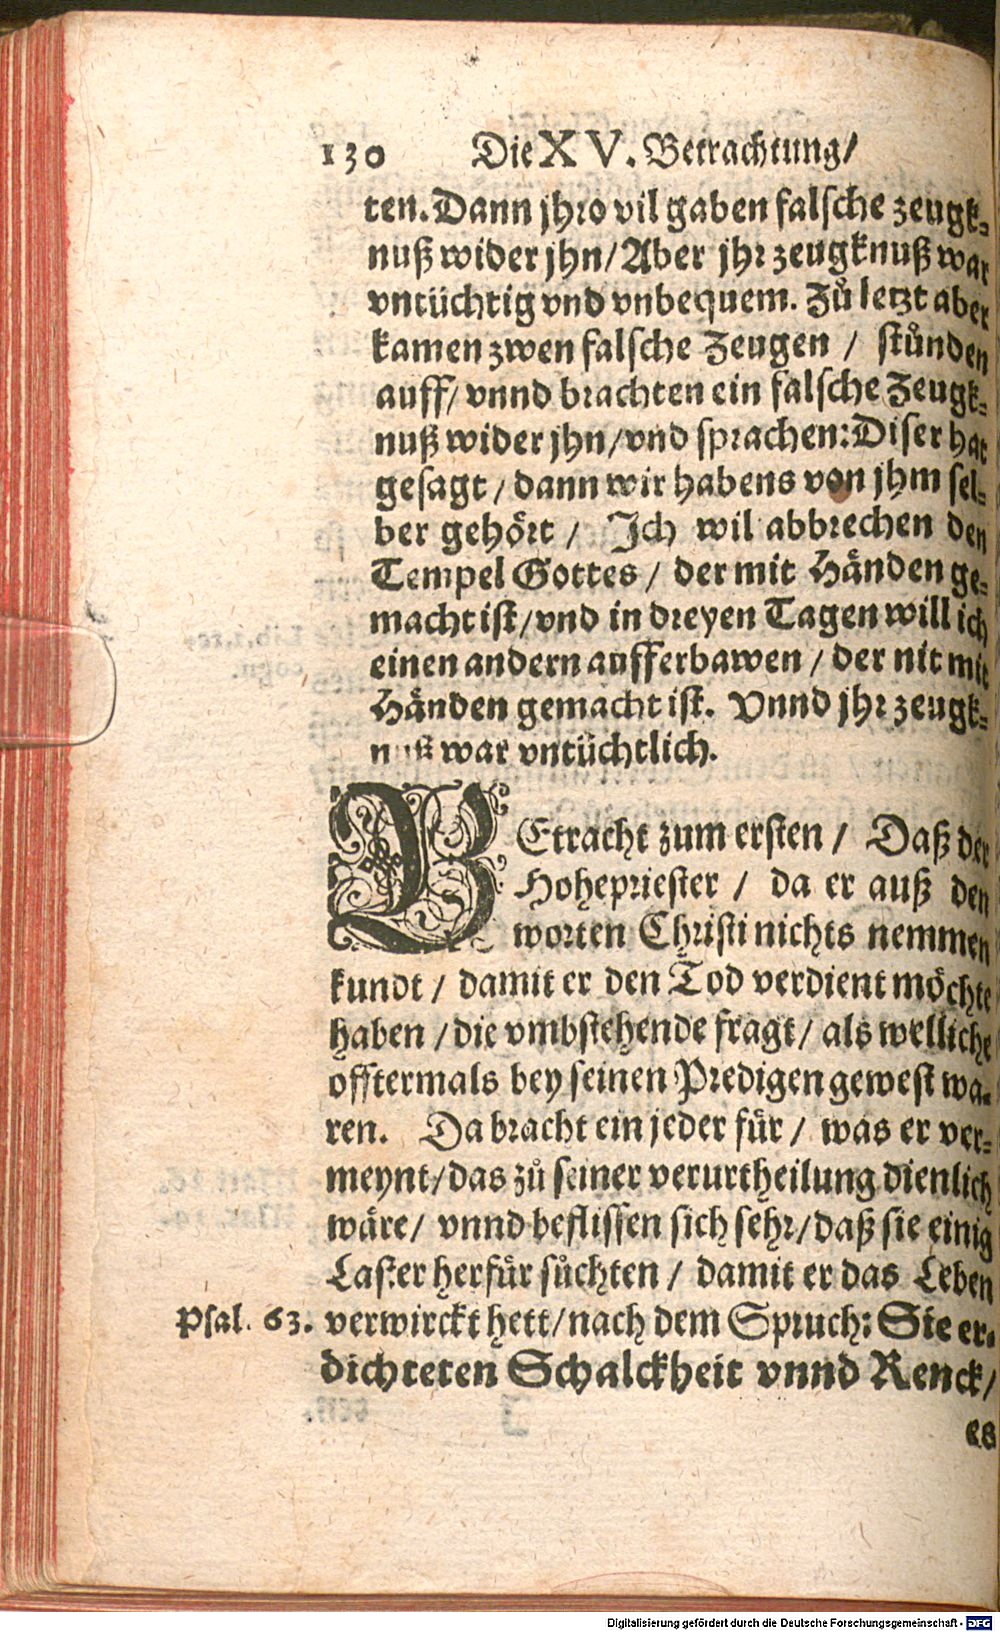 130 Die XV. Betrachtung/
ten. Dann jhro vil gaben falsche zeugk-
nuß wider jhn/ Aber jhr zeugknuß war
vntüchtig vnd vnbequem. Zů letzt aber
kamen zwen falsche Zeugen / stůnden
auff/ vnnd brachten ein falsche Zeugk-
nuß wider jhn/ vnd sprachen: Diser hat
gesagt / dann wir habens von jhm sel-
ber gehört / Ich wil abbrechen den
Tempel Gottes / der mit Händen ge-
macht ist/ vnd in dreyen Tagen will ich
einen andern aufferbawen / der nit mit
Händen gemacht ist. Vnnd jhr zeugk-
nuß war vntüchtlich.
BEtracht zum ersten / Daß der
Hohepriester / da er auß den
worten Christi nichts nemmen
kundt / damit er den Tod verdient möchte
haben / die vmbstehende fragt / als welliche
offtermals bey seinen Predigen gewest wa-
ren. Da bracht ein jeder für / was er ver-
meynt/ das zů seiner verurtheilung dienlich
wäre/ vnnd beflissen sich sehr/ daß sie einig
Laster herfür sůchten / damit er das Leben
Psal. 63. verwirckt hett/ nach dem Spruch: Sie er-
dichteten Schalckheit vnnd Renck/
es
Digitalisierung gefördert durch die Deutsche Forschungsgemeinschaft - DFG